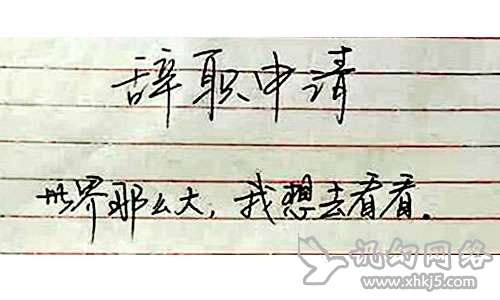 辞职申请
世界那么大，我想去看看。
讯幻网络
www.xhkj5.com